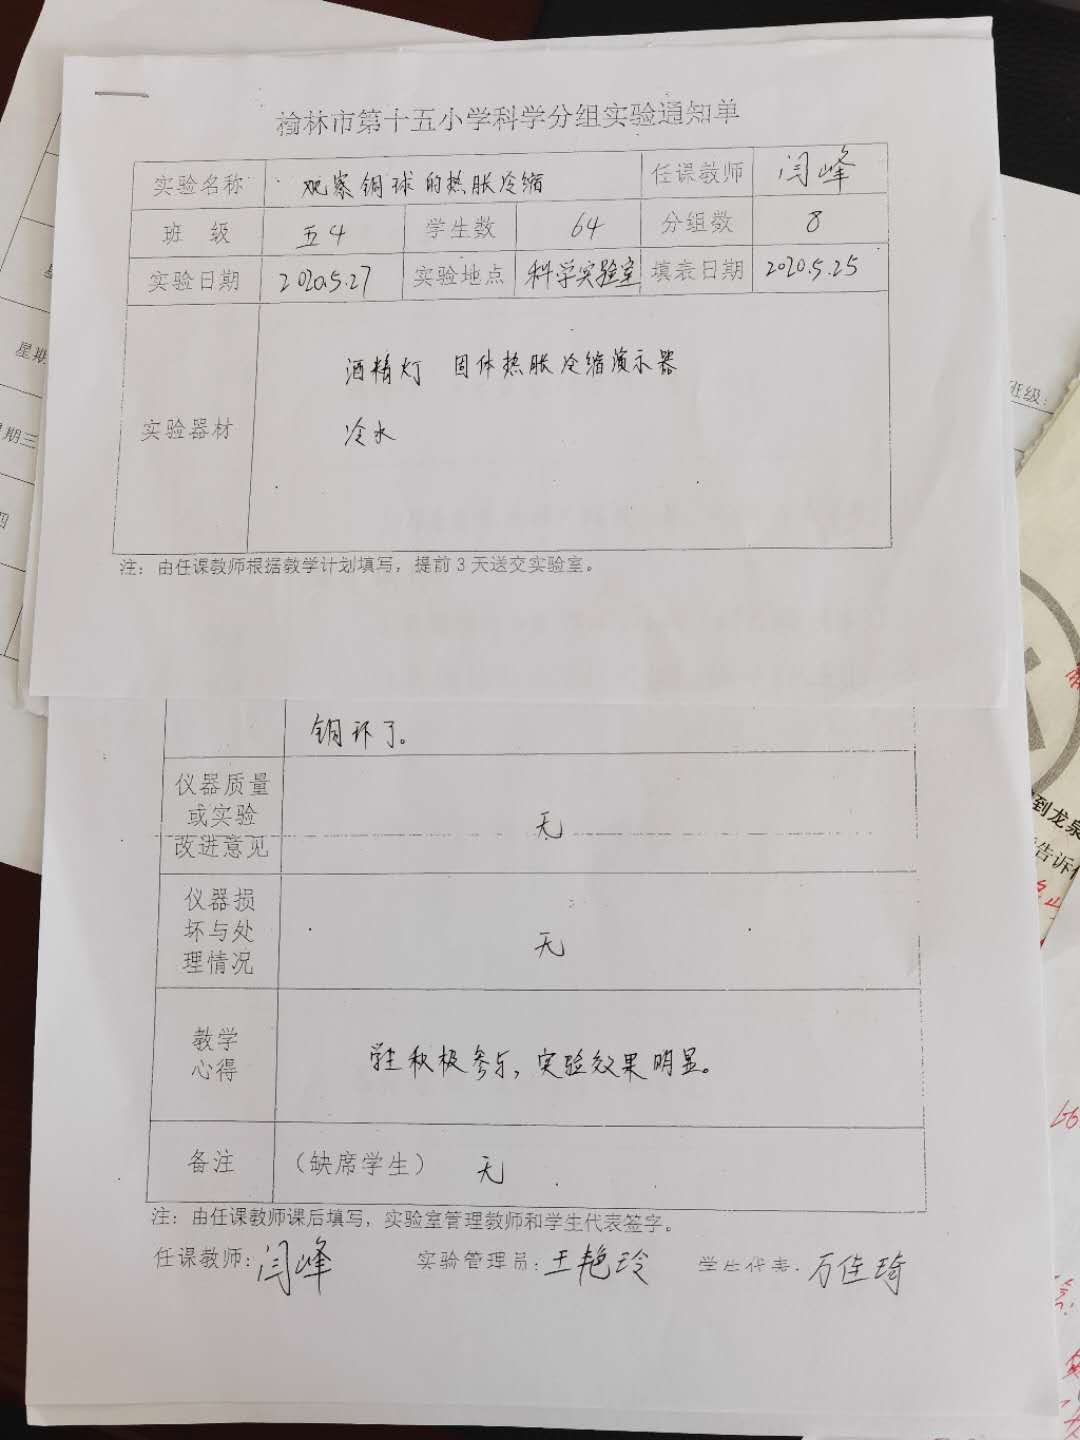 榆林市第十五小学科学分组实验通知单
实验名称 观察铜球的热胀冷缩 任课教师 闫峰
班 级 五4 学生数 64 分组数 8
实验日期 2020.5.27 实验地点 科学实验室 填表日期 2020.5.25
实验器材
酒精灯 固体热胀冷缩演示器
冷水
注：由任课教师根据教学计划填写，提前3天送交实验室。
铜环了。
仪器质量
或实验
改进意见
无
仪器损
坏与处
理情况
无
教学
心得
学生积极参与，实验效果明显。
备注 （缺席学生） 无
注：由任课教师课后填写，实验室管理教师和学生代表签字。
任课教师：闫峰 实验管理员：王艳玲 学生代表：万佳琦
班级：
星期
期三
四
到龙泉
告诉